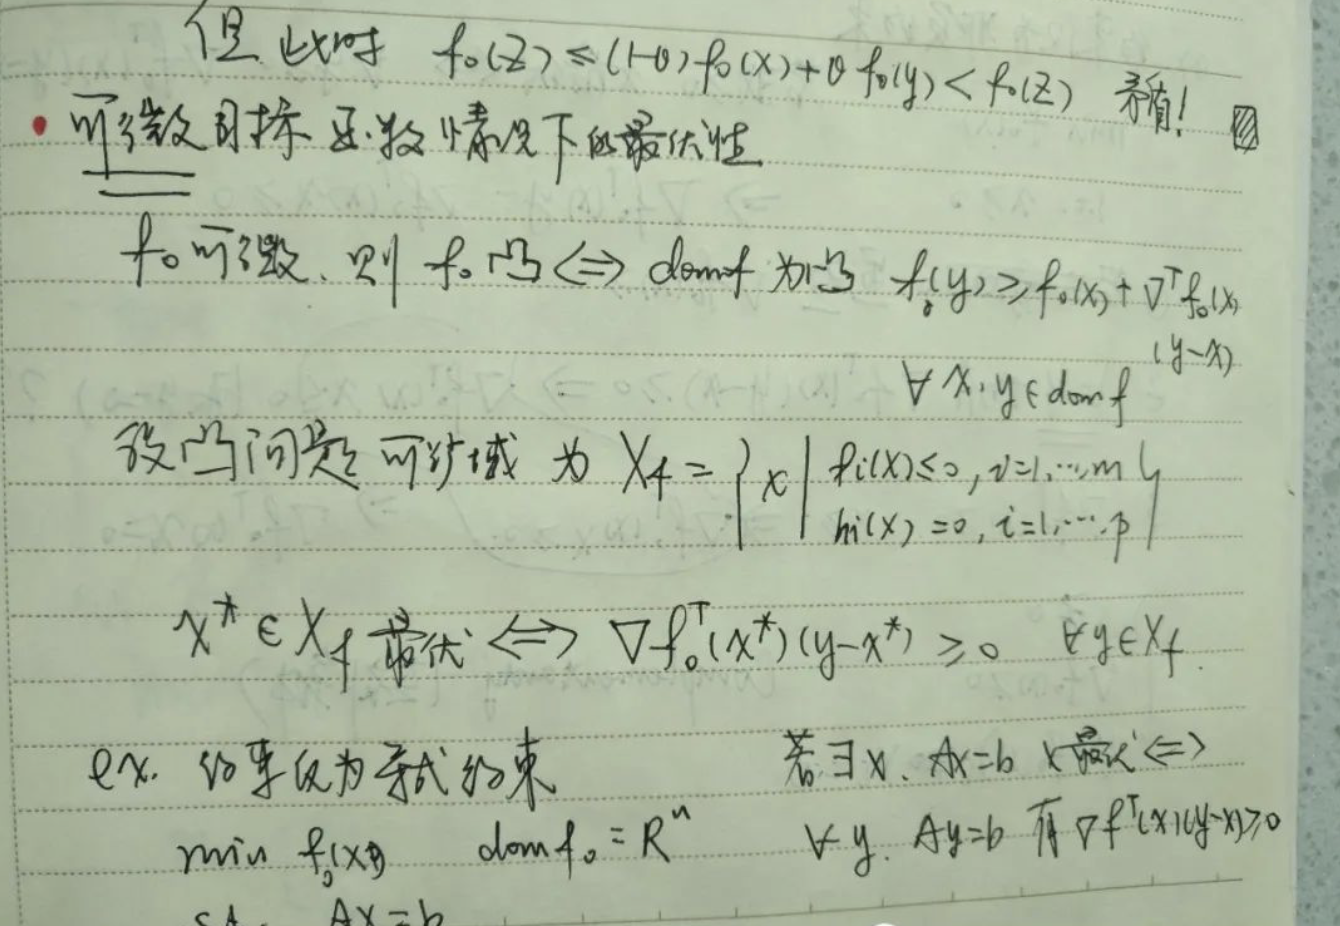 但此时 f₀(z) ≤ (1-θ) f₀(x) + θ f₀(y) < f₀(z) 矛盾!
• 可微目标函数情况下的最优性
f₀可微. 则 f₀凸 ⇔ domf 为凸 f₀(y) ≥ f₀(x) + ∇ᵀf₀(x)
(y-x)
∀ x, y ∈ domf
设凸问题可行域 为 X_f = { x | fi(x) ≤ 0, i=1,…,m
hi(x) = 0, i=1,…,p }
x* ∈ X_f 最优 ⇔ ∇f₀ᵀ(x*)(y-x*) ≥ 0 ∀y∈X_f.
ex. 约束仅为等式约束 若∃x. Ax=b x最优 ⇔
min f₀(x) domf₀ = Rⁿ ∀y. Ay=b 有∇fᵀ(x)(y-x)≥0
s.t. Ax=b